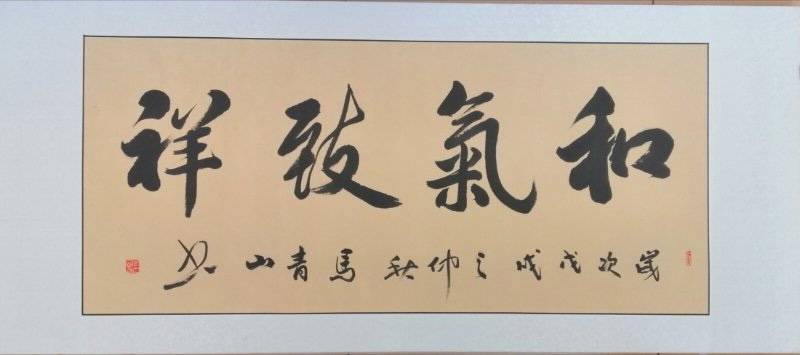 和氣致祥
歲次戊戌之仲秋馬青山書